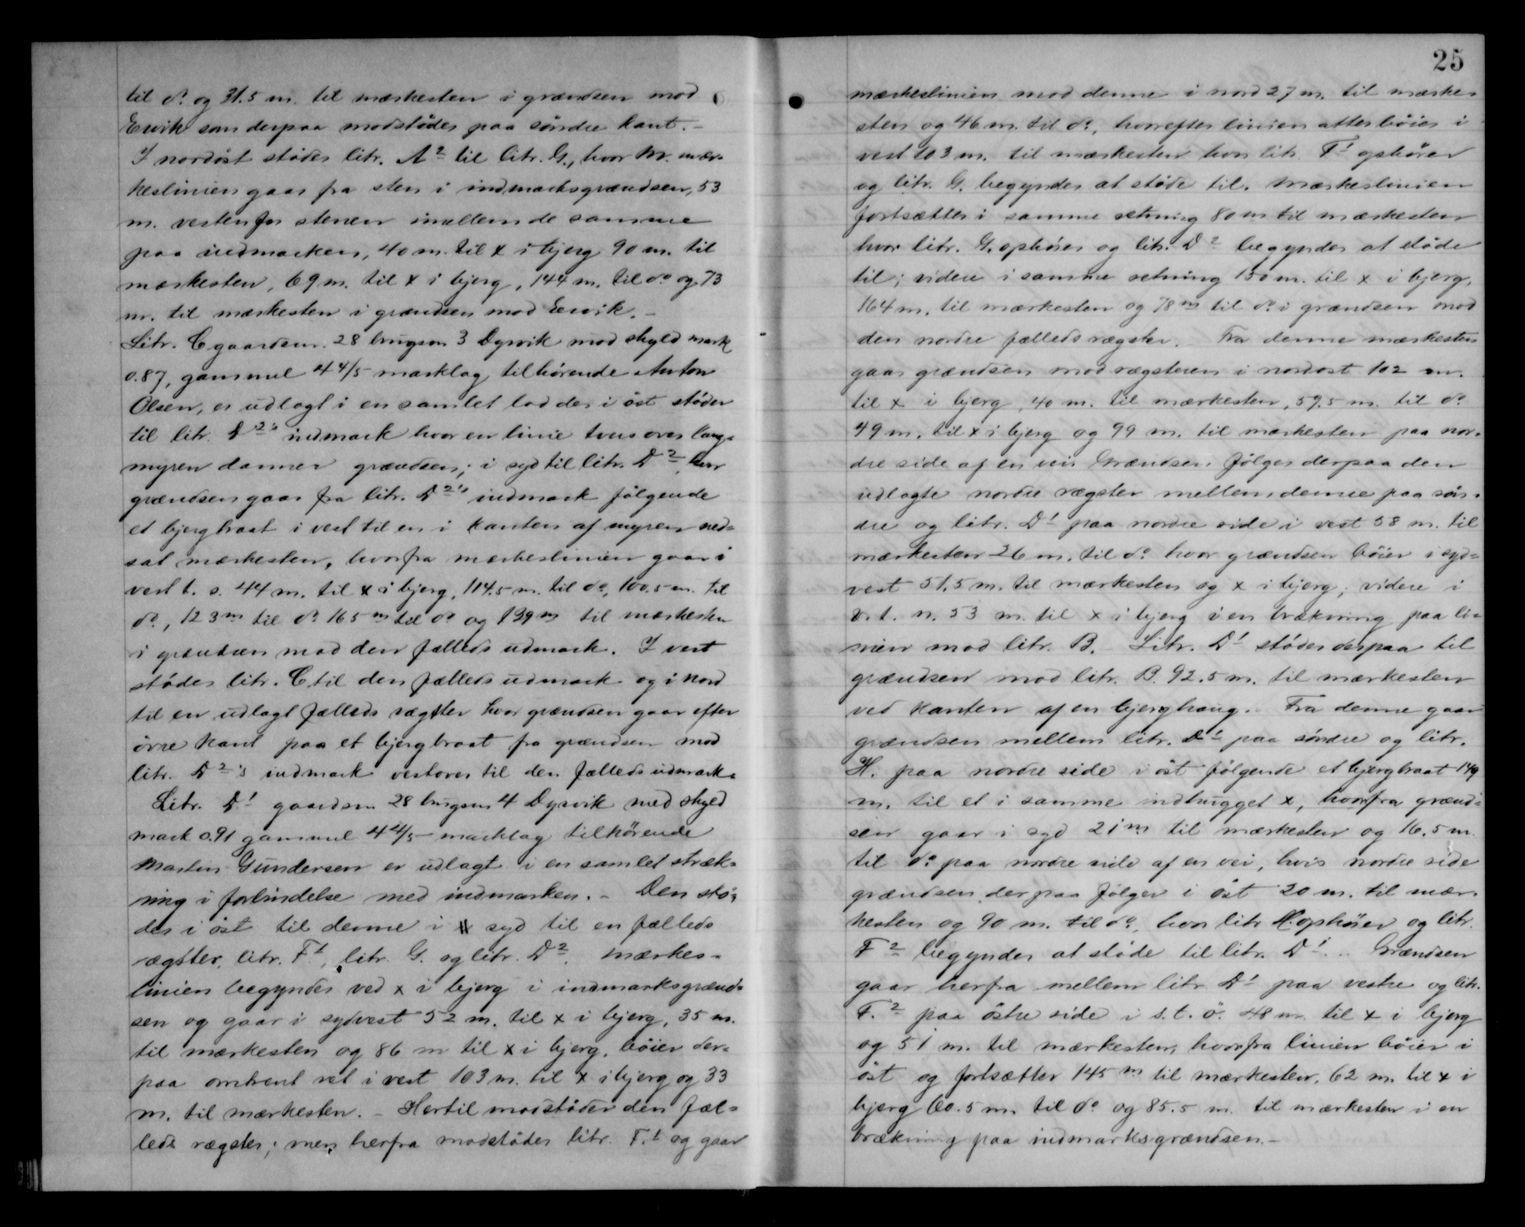 til do og 31.5 m. til mærkesten i grændsen mod
Ervik som derpaa modstøder paa søndre kant. –
I nordøst støder litr. A² til litr. G., hvor mær-
keslinien gaar fra sten i indmarksgrændsen, 53
m. vestenfor stenen imellem de samme
paa indmarken, 40 m. til x i bjerg 90 m. til
mærkesten, 69 m. til x i bjerg, 144 m. til do og 73
m. til mærkesten i grændsen mod Ervik. –
Litr. C gaardsn. 28 brugsn 3 Dyrvik med skyld mark
0.87, gammel 4 4/5 marklag tilhørende Anton
Olsen, er udlagt i en samlet lod der i øst støder
til litr. D²'s indmark hvor en linie tvers over lang-
myren danner grændsen; i syd til litr. D², hvor
grændsen gaar fra litr. D²'s indmark følgende
et bjergbrat i vest til en i kanten af myren ned-
sat mærkesten, hvorfra mærkeslinien gaar i
vest t. s. 44 m. til x i bjerg, 114.5 m. til do, 100.5 m. til
do, 123 m til do 165 m til do og 139 m til mærkesten
i grændsen mod den fælleds udmark. I vest
støder litr. C til den fælleds udmark og i nord
til en udlagt fælleds rægster hvor grændsen gaar efter
øvre kant paa et bjergbraat fra grændsen mod
litr. D²'s indmark vestover til den fælleds udmark.
Litr. D¹ gaardsn 28 brugsn 4 Dyrvik med skyld
mark 0.91 gammel 4 4/5 marklag tilhørende
Martin Gundersen er udlagt i en samlet stræk-
ning i forbindelse med indmarken. – Den stø-
der i øst til denne i syd til en fælleds
rægster, litr. F¹, litr. G. og litr. D². Mærkes-
linien begynder ved x i bjerg i indmarksgrænd-
sen og gaar i sydvest 52 m. til x i bjerg, 35 m.
til mærkesten og 86 m til x i bjerg, bøier der-
paa omtrent ret i vest 103 m. til x i bjerg og 33
m. til mærkesten. – Hertil modstøder den fæl-
leds rægster; men herfra modstøder litr. F.¹ og gaar
25
mærkeslinien mod denne i nord 27 m. til mærke-
sten og 46 m. til do, hvorefter linien atter bøier i
vest 103 m. til mærkesten hvor litr. F¹ ophører
og litr. G. begynder at støde til. Mærkeslinien
fortsætter i samme retning 80 m til mærkesten
hvor litr. G. ophører og litr. D² begynder at støde
til; videre i samme retning 150 m. til x i bjerg,
164 m. til mærkesten og 78 m til do i grændsen mod
den nordre fælleds rægster. Fra denne mærkesten
gaar grændsen mod rægsteren i nordost 102 m.
til x i bjerg, 40 m. til mærkesten, 59.5 m. til do
49 m. til x i bjerg og 99 m. til mærkesten paa nor-
dre side af en vei Grændsen følger derpaa den
udlagte nordre rægster mellem denne paa søn-
dre og litr. D¹ paa nordre side i vest 58 m. til
mærkesten 26 m. til do hvor grændsen bøier i syd-
vest 51.5 m. til mærkesten og x i bjerg, videre i
v. t. n. 53 m. til x i bjerg i en brækning paa li-
nien mod litr. B. Litr. D¹ støder derpaa til
grændsen mod litr. B. 92.5 m. til mærkesten
ved kanten af en bjerghaug. Fra denne gaar
grændsen mellem litr. D¹ paa søndre og litr.
H. paa nordre side i øst følgende et bjergbraat 149
m. til et i samme indhugget x, hvorfra grænd-
sen gaar i syd 21 m til mærkesten og 16.5 m.
til do paa nordre side af en vei, hvis nordre side
grændsen derpaa følger i øst 20 m. til mær-
kesten og 90 m. til do, hvor litr H ophører og litr.
F² begynder at støde til litr. D¹. – Grændsen
gaar herfra mellem litr D¹ paa vestre og litr.
F.² paa østre side i s. t. ö. 48 m til x i bjerg
og 51 m. til mærkesten, hvorfra linien bøier i
øst og fortsætter 145 m til mærkesten, 62 m. til x i
bjerg 60.5 m. til do og 85.5 m. til mærkesten i en
brækning paa indmarksgrændsen. –